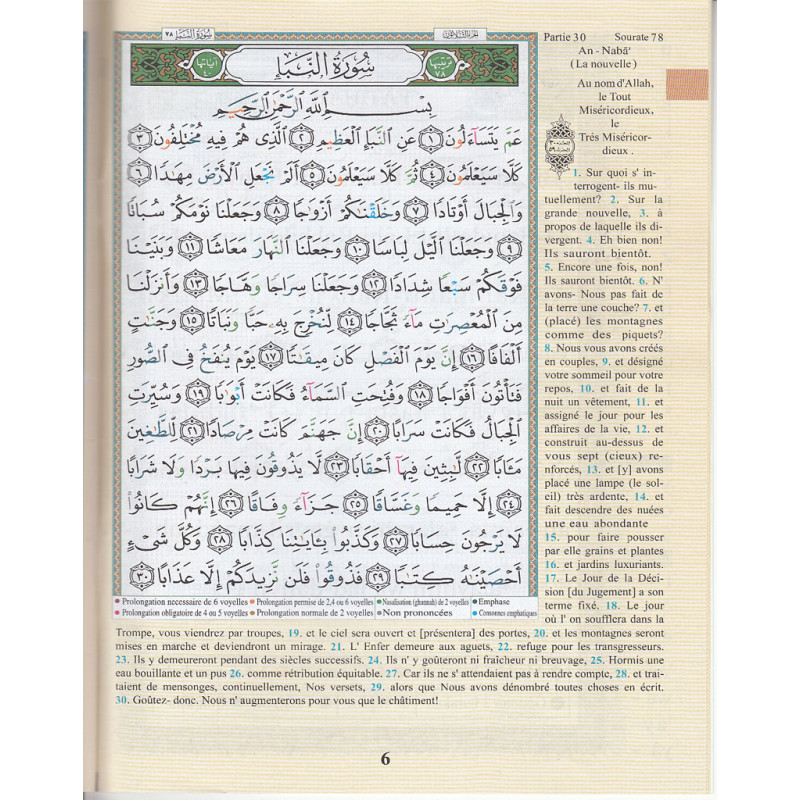 سُورَةُ النَّبَإِ ٧٨
الجزء الثلاثون
Partie 30 Sourate 78
An - Nabā'
(La nouvelle)
آياتها ٤٠
سُورَةُ النَّبَإِ
ترتيبها ٧٨
بِسْمِ ٱللَّهِ ٱلرَّحْمَٰنِ ٱلرَّحِيمِ
عَمَّ يَتَسَآءَلُونَ ١ عَنِ ٱلنَّبَإِ ٱلْعَظِيمِ ٢ ٱلَّذِى هُمْ فِيهِ مُخْتَلِفُونَ ٣
كَلَّا سَيَعْلَمُونَ ٤ ثُمَّ كَلَّا سَيَعْلَمُونَ ٥ أَلَمْ نَجْعَلِ ٱلْأَرْضَ مِهَٰدًا ٦
وَٱلْجِبَالَ أَوْتَادًا ٧ وَخَلَقْنَٰكُمْ أَزْوَٰجًا ٨ وَجَعَلْنَا نَوْمَكُمْ سُبَاتًا
٩ وَجَعَلْنَا ٱلَّيْلَ لِبَاسًا ١٠ وَجَعَلْنَا ٱلنَّهَارَ مَعَاشًا ١١ وَبَنَيْنَا
فَوْقَكُمْ سَبْعًا شِدَادًا ١٢ وَجَعَلْنَا سِرَاجًا وَهَّاجًا ١٣ وَأَنزَلْنَا
مِنَ ٱلْمُعْصِرَٰتِ مَآءً ثَجَّاجًا ١٤ لِّنُخْرِجَ بِهِۦ حَبًّا وَنَبَاتًا ١٥ وَجَنَّٰتٍ
أَلْفَافًا ١٦ إِنَّ يَوْمَ ٱلْفَصْلِ كَانَ مِيقَٰتًا ١٧ يَوْمَ يُنفَخُ فِى ٱلصُّورِ
فَتَأْتُونَ أَفْوَاجًا ١٨ وَفُتِحَتِ ٱلسَّمَآءُ فَكَانَتْ أَبْوَٰبًا ١٩ وَسُيِّرَتِ
ٱلْجِبَالُ فَكَانَتْ سَرَابًا ٢٠ إِنَّ جَهَنَّمَ كَانَتْ مِرْصَادًا ٢١ لِّلطَّٰغِينَ
مَـَٔابًا ٢٢ لَّٰبِثِينَ فِيهَآ أَحْقَابًا ٢٣ لَّا يَذُوقُونَ فِيهَا بَرْدًا وَلَا شَرَابًا
٢٤ إِلَّا حَمِيمًا وَغَسَّاقًا ٢٥ جَزَآءً وِفَاقًا ٢٦ إِنَّهُمْ كَانُوا۟
لَا يَرْجُونَ حِسَابًا ٢٧ وَكَذَّبُوا۟ بِـَٔايَٰتِنَا كِذَّابًا ٢٨ وَكُلَّ شَىْءٍ
أَحْصَيْنَٰهُ كِتَٰبًا ٢٩ فَذُوقُوا۟ فَلَن نَّزِيدَكُمْ إِلَّا عَذَابًا ٣٠
Prolongation necessaire de 6 voyelles Prolongation permise de 2,4 ou 6 voyelles Nasalisation (ghannah) de 2 voyelles Emphase
Prolongation obligatoire de 4 ou 5 voyelles Prolongation normale de 2 voyelles Non prononcées Consonnes emphatiques
Au nom d'Allah,
le Tout
Miséricordieux,
le
Trés Miséricor-
dieux .
1. Sur quoi s' in-
terrogent- ils mu-
tuellement? 2. Sur la
grande nouvelle, 3. à
propos de laquelle ils di-
vergent. 4. Eh bien non!
Ils sauront bientôt.
5. Encore une fois, non!
Ils sauront bientôt. 6. N'
avons- Nous pas fait de
la terre une couche? 7. et
(placé) les montagnes
comme des piquets?
8. Nous vous avons créés
en couples, 9. et désigné
votre sommeil pour votre
repos, 10. et fait de la
nuit un vêtement, 11. et
assigné le jour pour les
affaires de la vie, 12. et
construit au-dessus de
vous sept (cieux) re-
nforcés, 13. et [y] avons
placé une lampe (le sol-
eil) très ardente, 14. et
fait descendre des nuées
une eau abondante
15. pour faire pousser
par elle grains et plantes
16. et jardins luxuriants.
17. Le Jour de la Déci-
sion [du Jugement] a son
terme fixé. 18. Le jour
où l' on soufflera dans la
Trompe, vous viendrez par troupes, 19. et le ciel sera ouvert et [présentera] des portes, 20. et les montagnes seront
mises en marche et deviendront un mirage. 21. L' Enfer demeure aux aguets, 22. refuge pour les transgresseurs.
23. Ils y demeureront pendant des siècles successifs. 24. Ils n' y goûteront ni fraîcheur ni breuvage, 25. Hormis une
eau bouillante et un pus 26. comme rétribution équitable. 27. Car ils ne s' attendaient pas à rendre compte, 28. et trai-
taient de mensonges, continuellement, Nos versets, 29. alors que Nous avons dénombré toutes choses en écrit.
30. Goûtez- donc. Nous n' augmenterons pour vous que le châtiment!
6